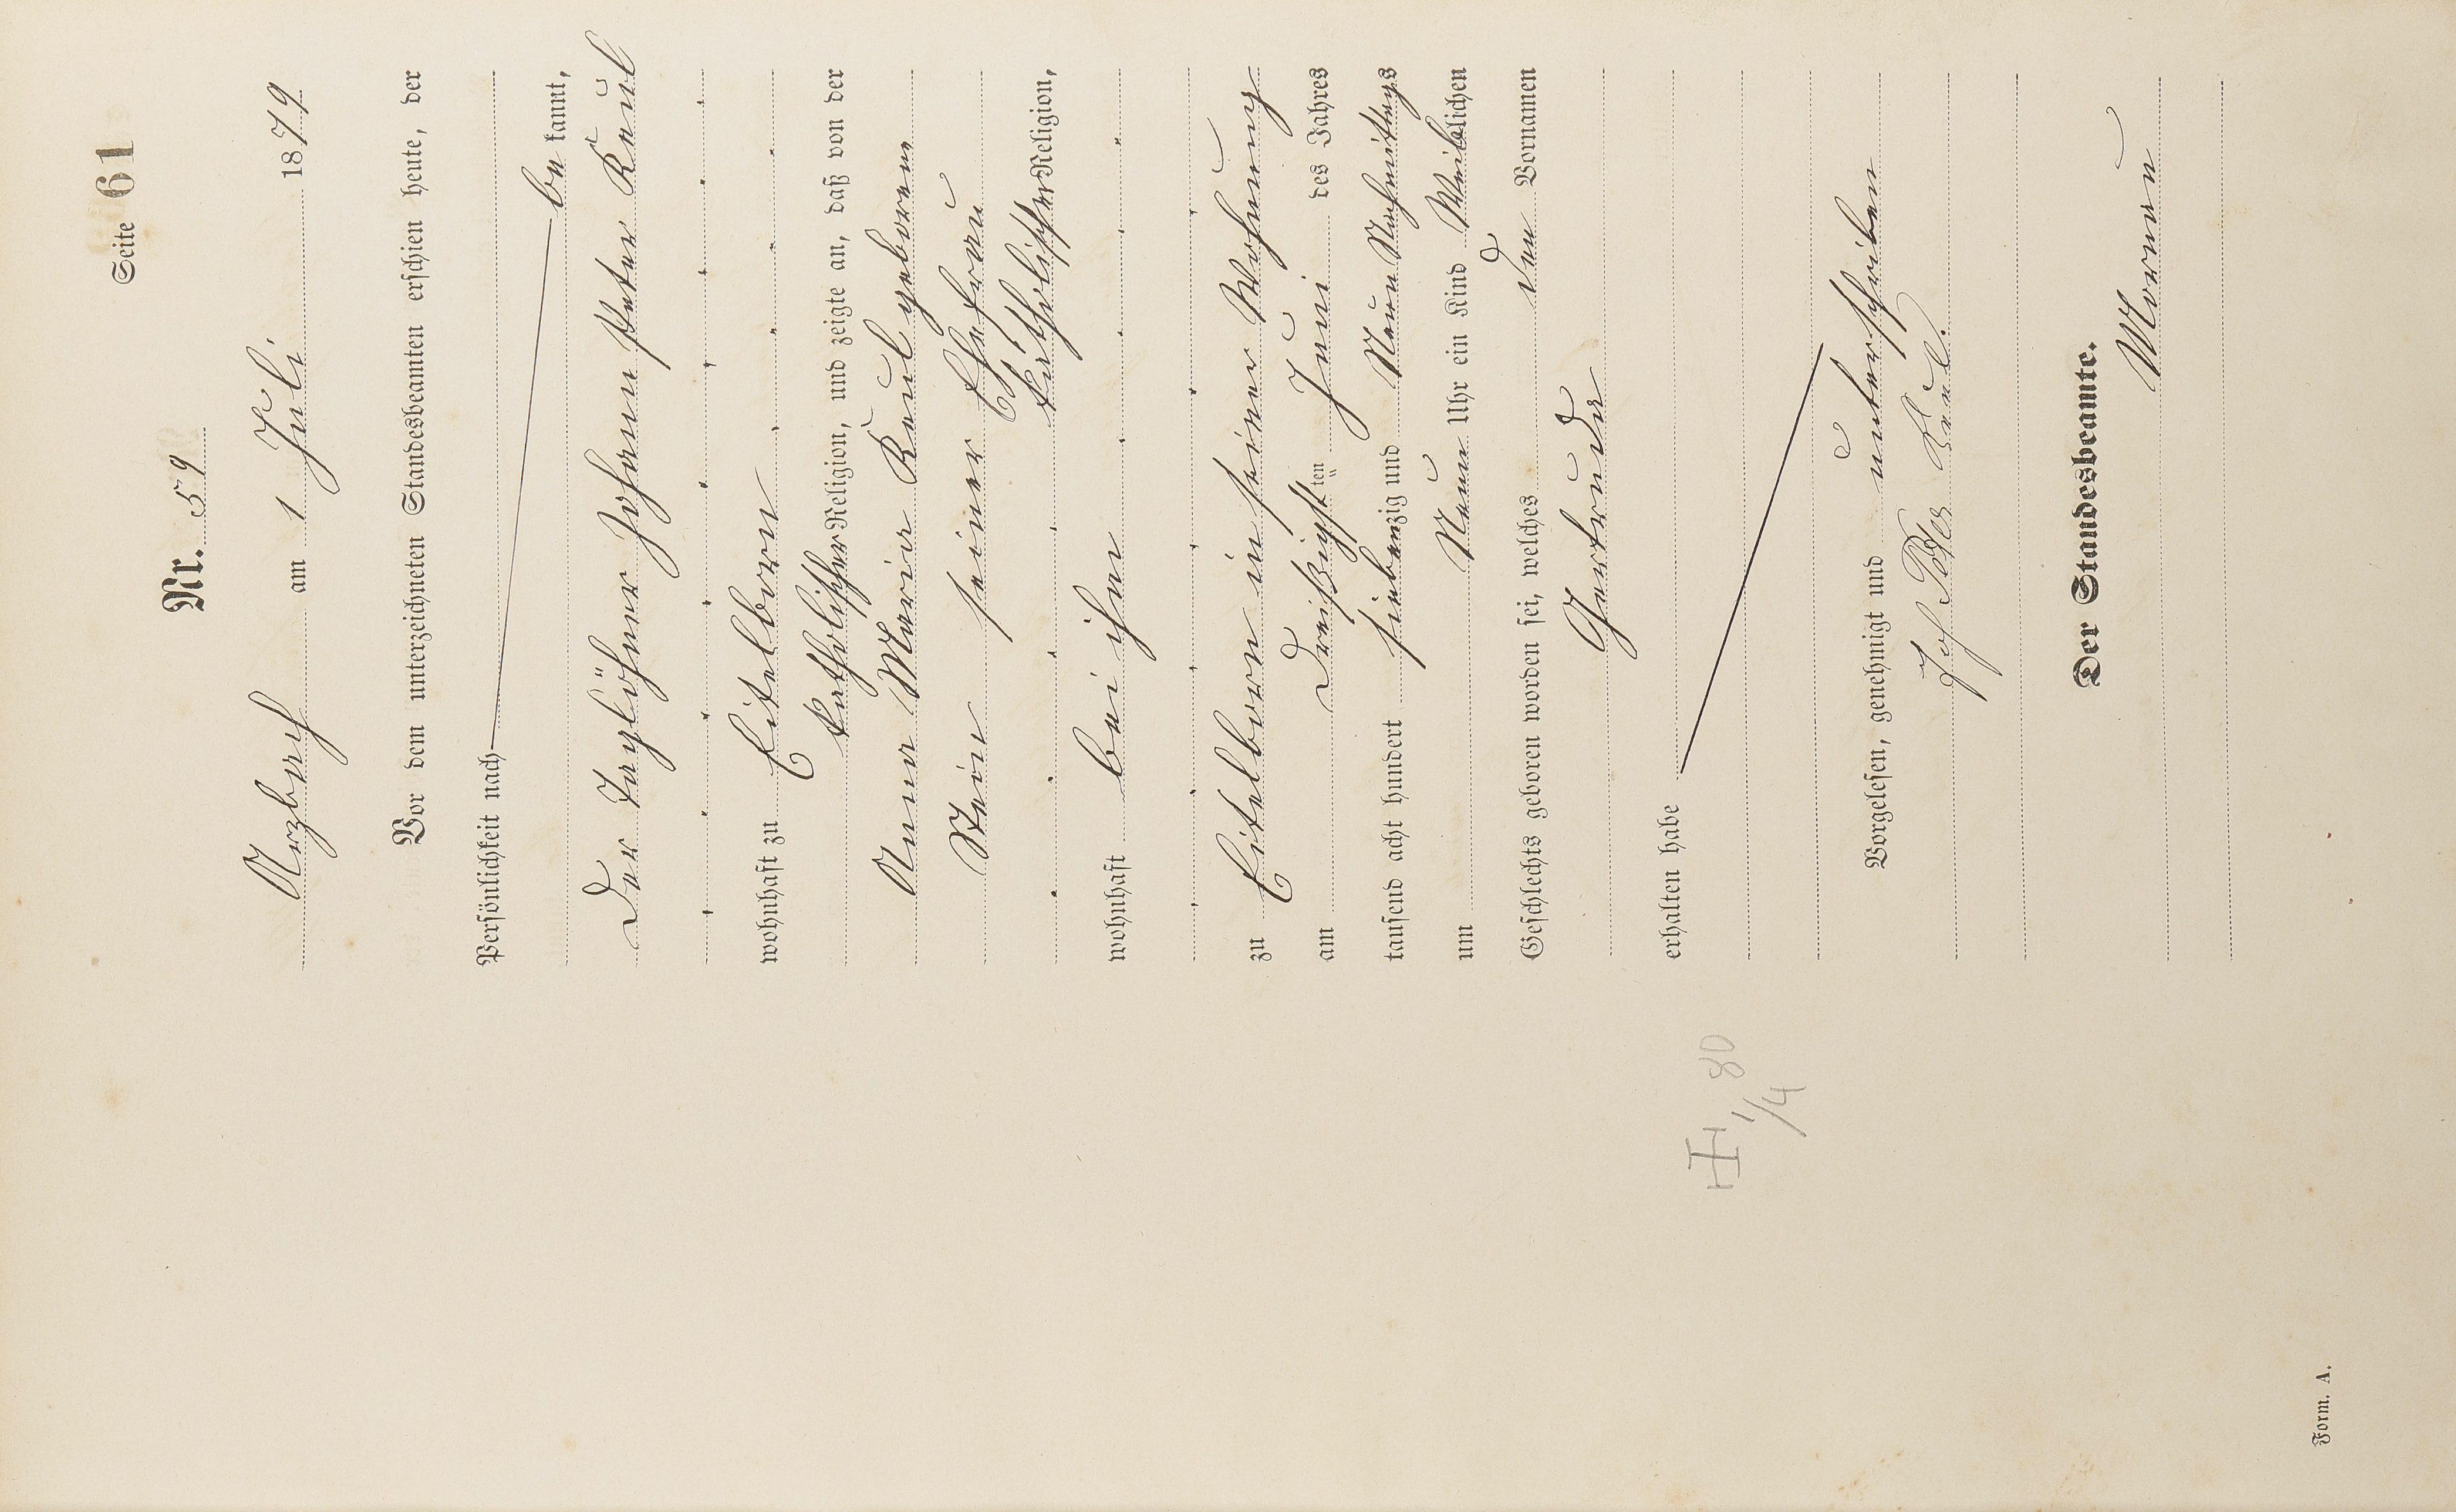 Seite 61
Nr. 59
Arzbach am 1 Juli 1879
Vor dem unterzeichneten Standesbeamten erschien heute, der
Persönlichkeit nach
be kannt,
der Taglöhner Johann Peter Keul
wohnhaft zu Eitelborn
katholischer Religion, und zeigte an, daß von der
Anna Maria Keul geborene
Stein seiner Ehefrau
katholischer Religion,
wohnhaft bei ihm
zu Eitelborn in seiner Wohnung
am Dreißigsten ten Juni des Jahres
tausend acht hundert siebenzig und Neun Nachmittags
um Neun Uhr ein Kind Weiblichen
Geschlechts geboren worden sei, welches den Vornamen
Gertruda
erhalten habe
Vorgelesen, genehmigt und unterschrieben
Joh Peter Keul.
Der Standesbeamte.
1/4 80
Form. A.